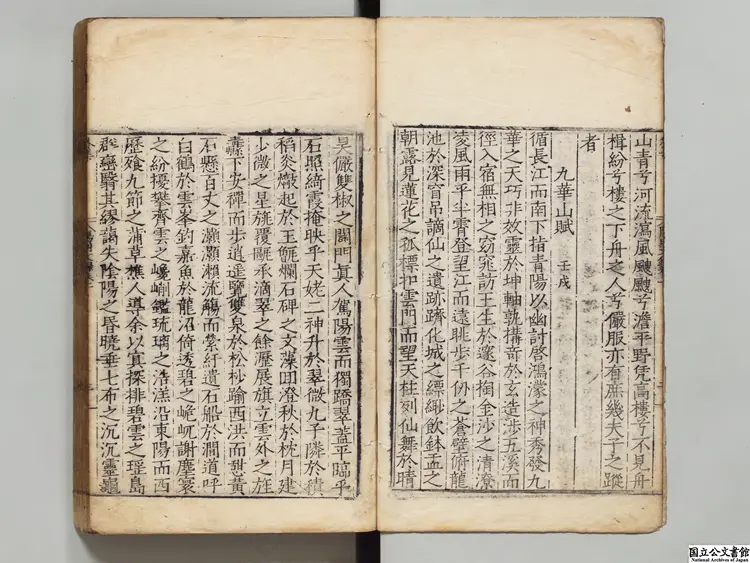 山青兮河流瀉風颼颼兮澹平野凭高樓兮不見舟
楫紛兮樓之下舟之人兮儼服亦有庶幾夫子之蹤
者
九華山賦 壬戌
循長江而南下指青陽以幽討啓鴻濛之神秀發九
華之天巧非效靈於坤軸孰搆奇於玄造涉五溪而
徑入宿無相之窈窕訪王生於邃谷掏金沙之清潦
凌風雨乎半霄登望江而遠眺步千仞之蒼壁俯龍
池於深窅吊謫仙之遺跡躋化城之縹緲飲鉢盂之
朝露見蓮花之孤標扣雲門而望天柱列仙舞於晴
昊儼雙椒之闢門真人駕陽雲而獨蹻翠蓋平臨乎
石照綺霞掩映乎天姥二神升於翠微九子隣於積
稻炎歊起於玉甑爛石碑之文藻回澄秋於枕月建
少微之星旄覆甌承滴翠之餘瀝展旗立雲外之旌
纛下安禪而步逍遙覽雙泉於松杪踰西洪而憇黃
石懸百丈之灝灝瀨流觴而縈紆遺石船於澗道呼
白鶴於雲峯釣嘉魚於龍沼倚透碧之峗屼謝塵寰
之紛擾攀齊雲之巉峭鑑琉璃之浩溔沿東陽而西
歷飱九節之蒲草樵人導余以冥探排碧雲之瑤島
群巒翳其繆藹失陰陽之昏曉垂七布之沉沉靈龜
国立公文書館
National Archives of Japan